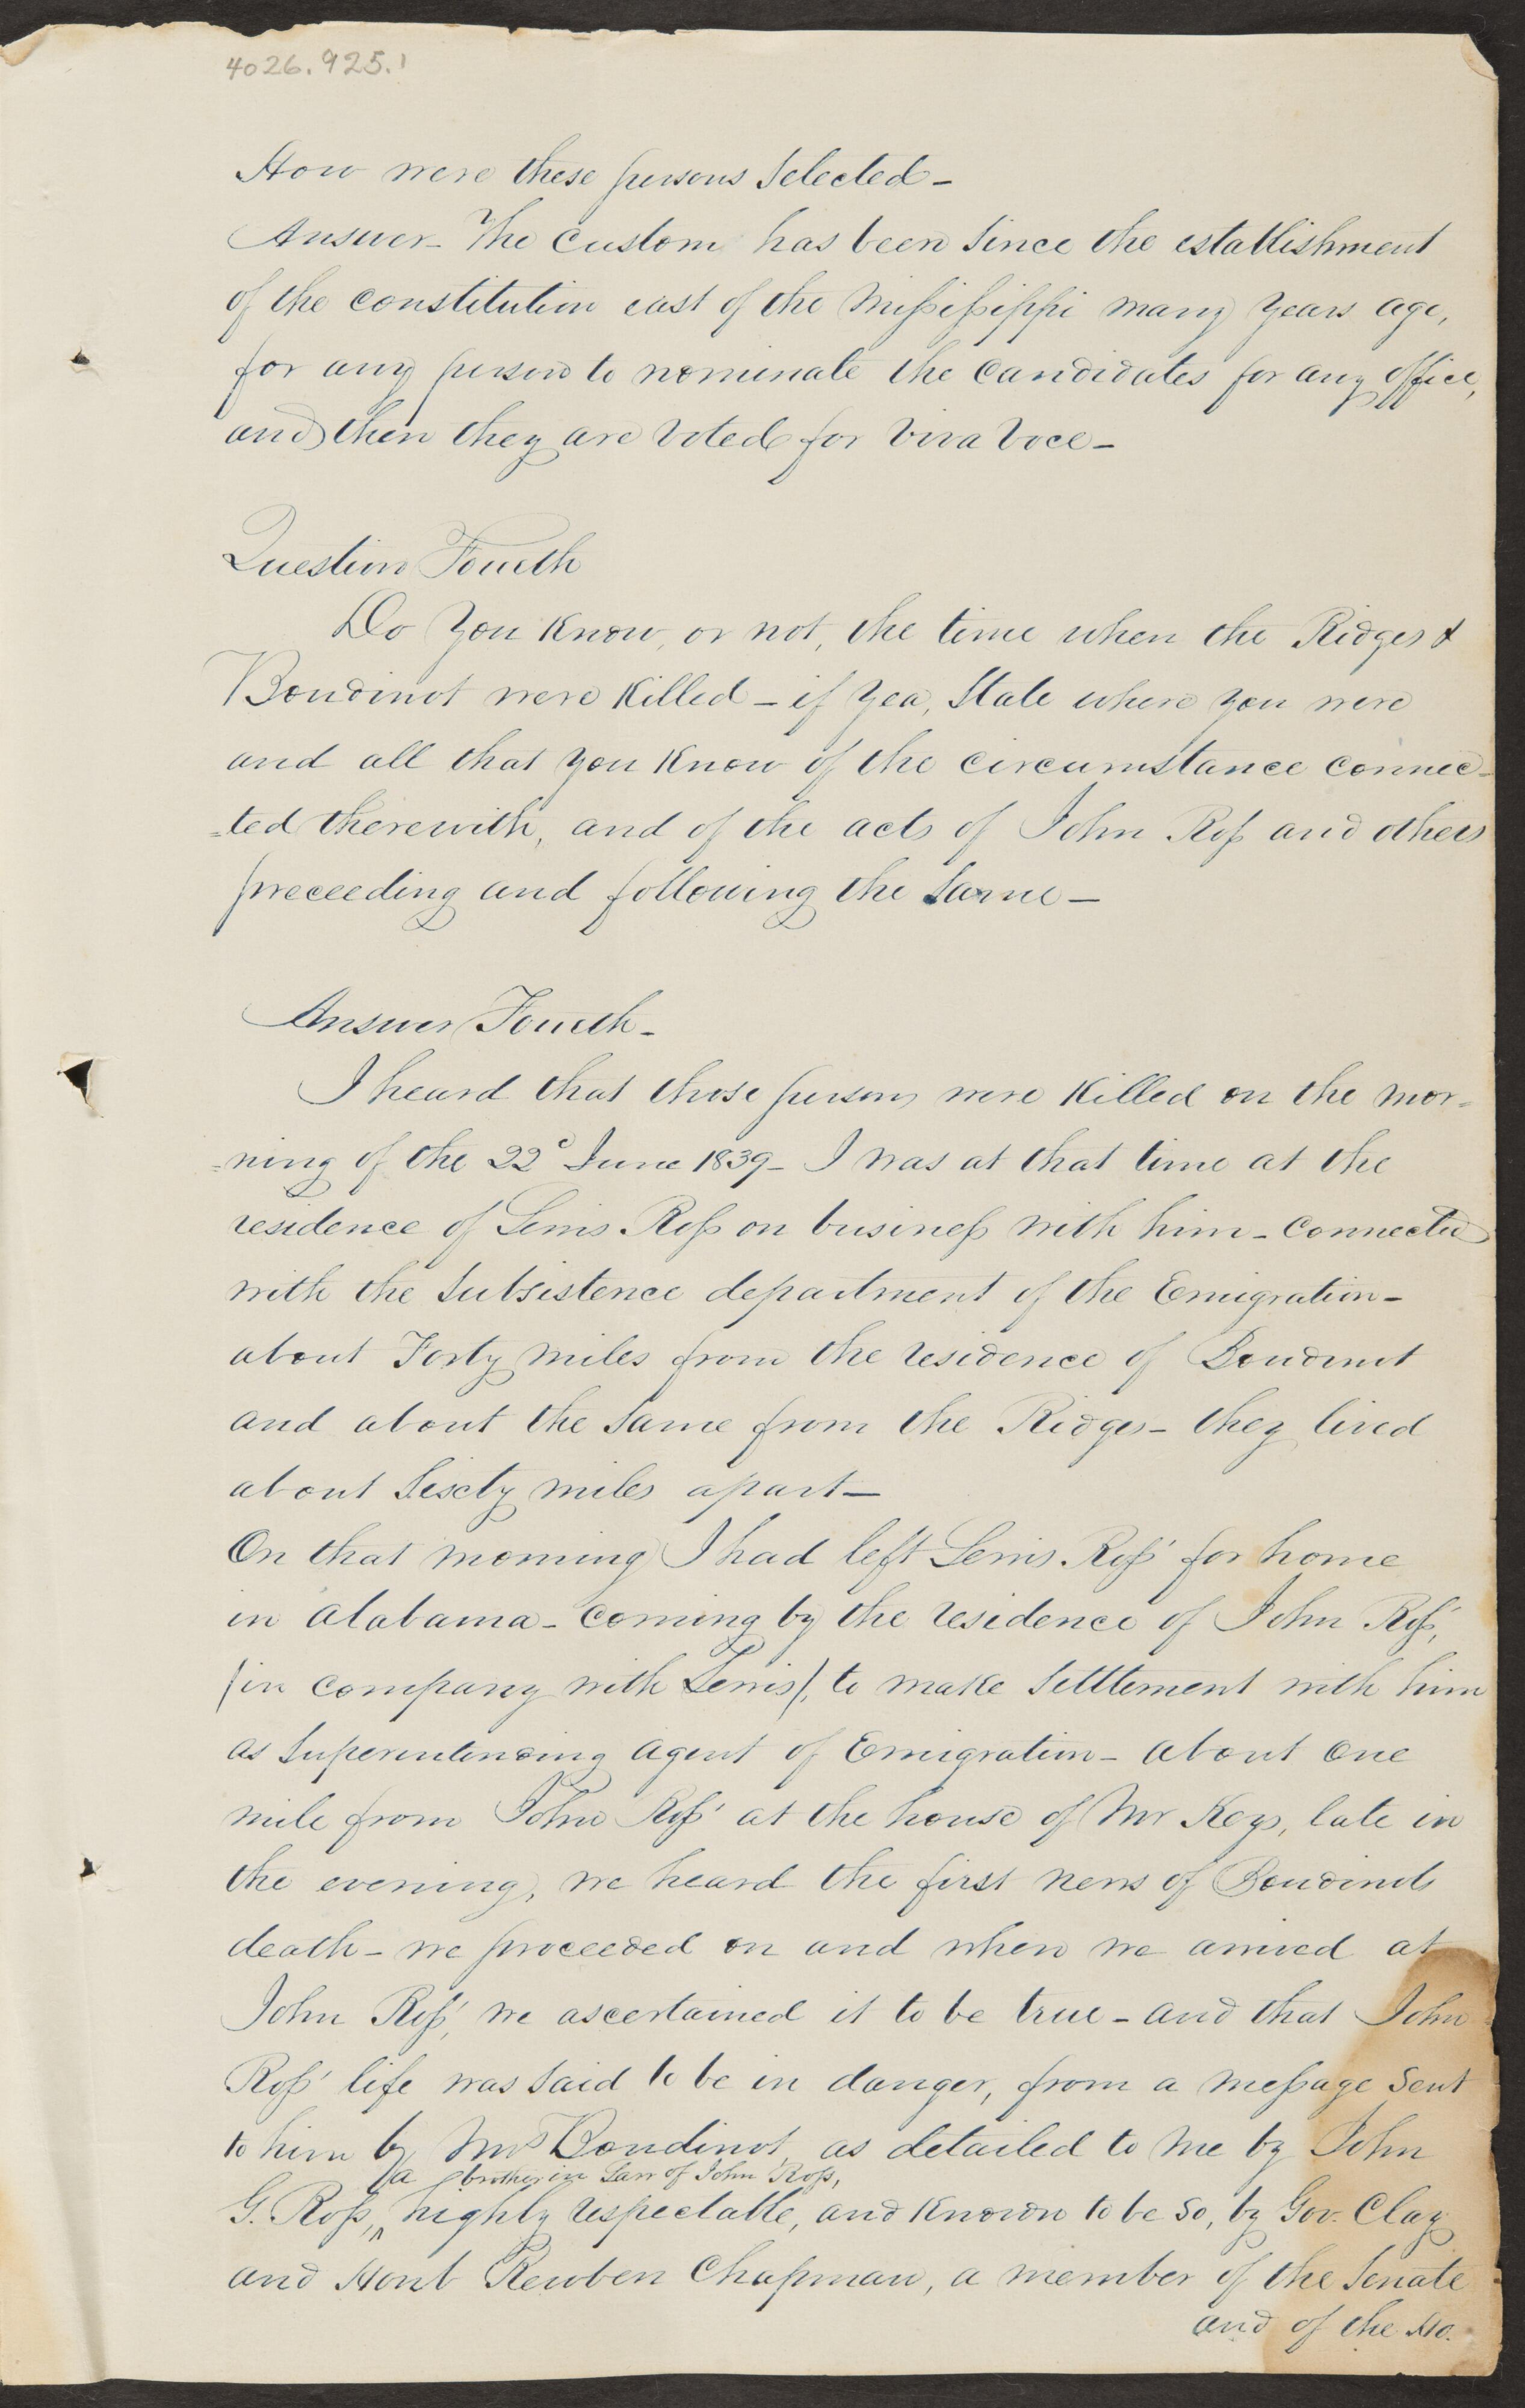 4026.925.1
How were these persons Selected –
Answer – The Custom has been Since the establishment
of the constitution east of the Mississippi many years ago,
for any person to nominate the Candidates for any office,
and then they are Voted for Viva Voce –
Question Fourth
Do You Know, or not, the time when the Ridges &
Boudinot were Killed – if Yea, State where you were
and all that you Know of the circumstance connec-
=ted therewith, and of the acts of John Ross and others
preceeding and following the Same –
Answer Fourth –
I heard that those persons were Killed on the mor-
=ning of the 22d June 1839 – I was at that time at the
residence of Lewis Ross on business with him – Connected
with the Subsistence department of the Emigration –
about Forty Miles from the residence of Boudinot
and about the Same from the Ridges – they lived
about Sixty miles apart –
On that morning I had left Lewis Ross' for home
in Alabama – Coming by the residence of John Ross',
(in company with Lewis), to make Settlement with him
as Superintending Agent of Emigration – About One
mile from John Ross' at the house of Mr Keys, late in
the evening, we heard the first news of Boudinots
death – we proceeded on and when we arrived at
John Ross', we ascertained it to be true – and that John
Ross' life was Said to be in danger, from a message Sent
to him by Mrs Boudinot, as detailed to me by John
(a brother in Law of John Ross,
G. Ross, highly respectable, and Known to be So, by Gov. Clay
and Honl Reuben Chapman, a member of the Senate
and of the Ho.